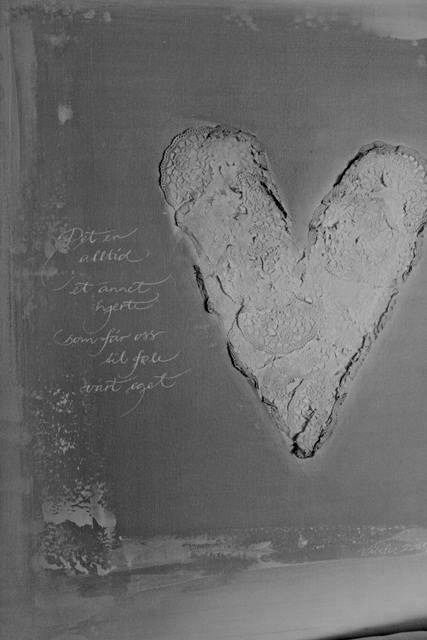 Det er
alltid
et annet
hjerte
som får oss
til føle
vårt eget